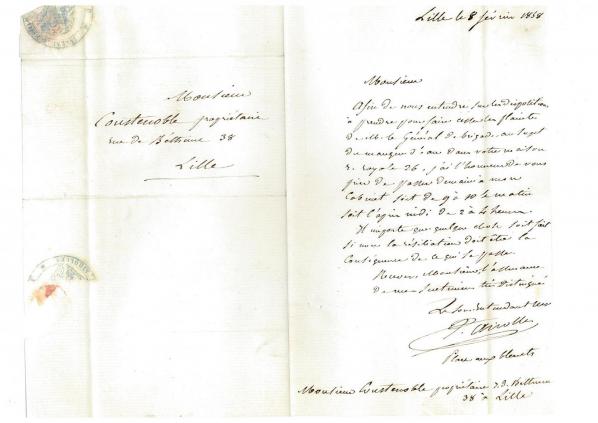 Monsieur
Coustenoble propriétaire
rue de Béthune 38
Lille
Lille le 8 février 1858
Monsieur
Afin de nous entendre sur les dispositions
à prendre pour faire cesser les plaintes
de M. le Général de brigade au sujet
du manque d'eau dans votre maison
r. royale 36, j'ai l'honneur de vous
prier de passer demain à mon
Cabinet soit de 9 à 10 le matin
soit l'après midi de 2 à 4 heures.
Il importe que quelque chose soit fait
si non la résiliation doit être la
Conséquence de ce qui se passe.
Recevez Monsieur, l'assurance
de mes sentiments très distingués
Le Sous Intendant Mre
Place aux bleuets
Monsieur Coustenoble propriétaire r. d. Béthune
38 à Lille